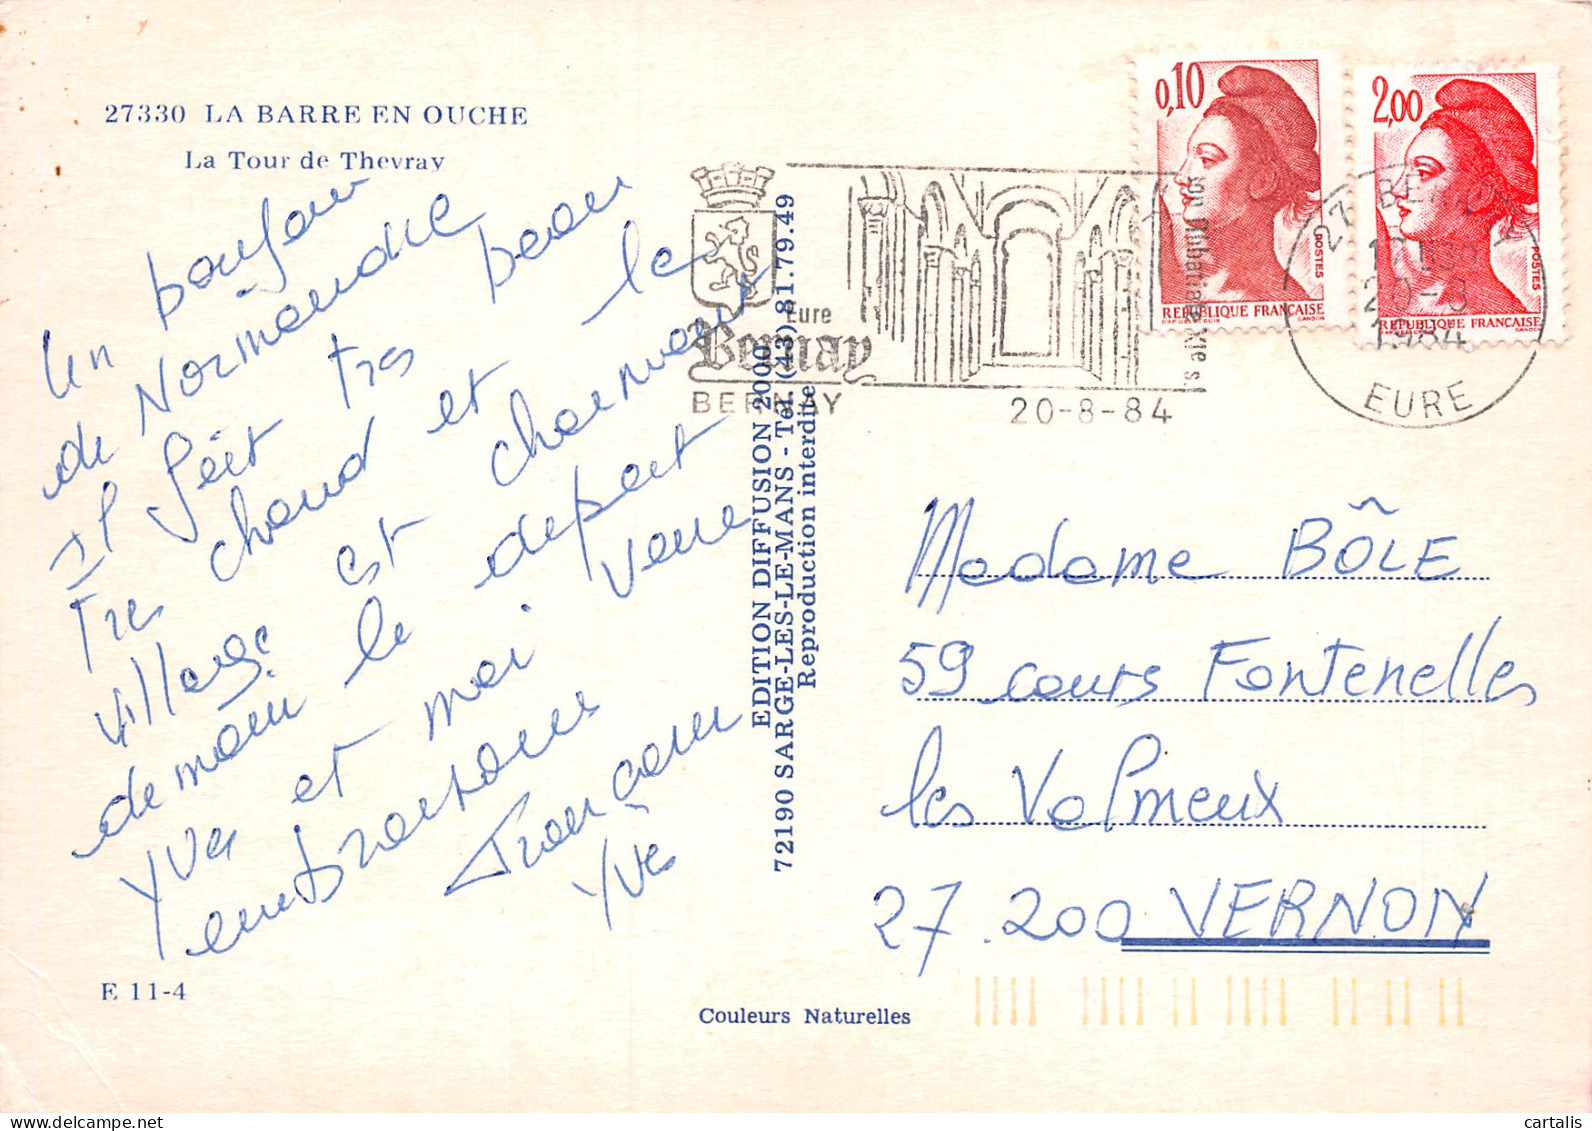 27330 LA BARRE EN OUCHE
La Tour de Thevray
Un bonjour
de Normandie
Il fait très beau
Tres chaud et le
village est charmant
demain le depart
Yves et moi vous
embrassons
Françoise
Yves
E 11-4
EDITION DIFFUSION 2000
72190 SARGE-LES-LE-MANS - Tél. (43) 81.79.49
Reproduction interdite
Couleurs Naturelles
Eure
Bernay
son Abbatiale XIe s.
BERNAY
20-8-84
0,10
POSTES
REPUBLIQUE FRANÇAISE
GANDON
2,00
POSTES
REPUBLIQUE FRANÇAISE
GANDON
27 BERNAY
20-8
1984
EURE
Madame BÔLE
59 cours Fontenelles
les Valmeux
27.200 VERNON
cartalis
www.delcampe.net